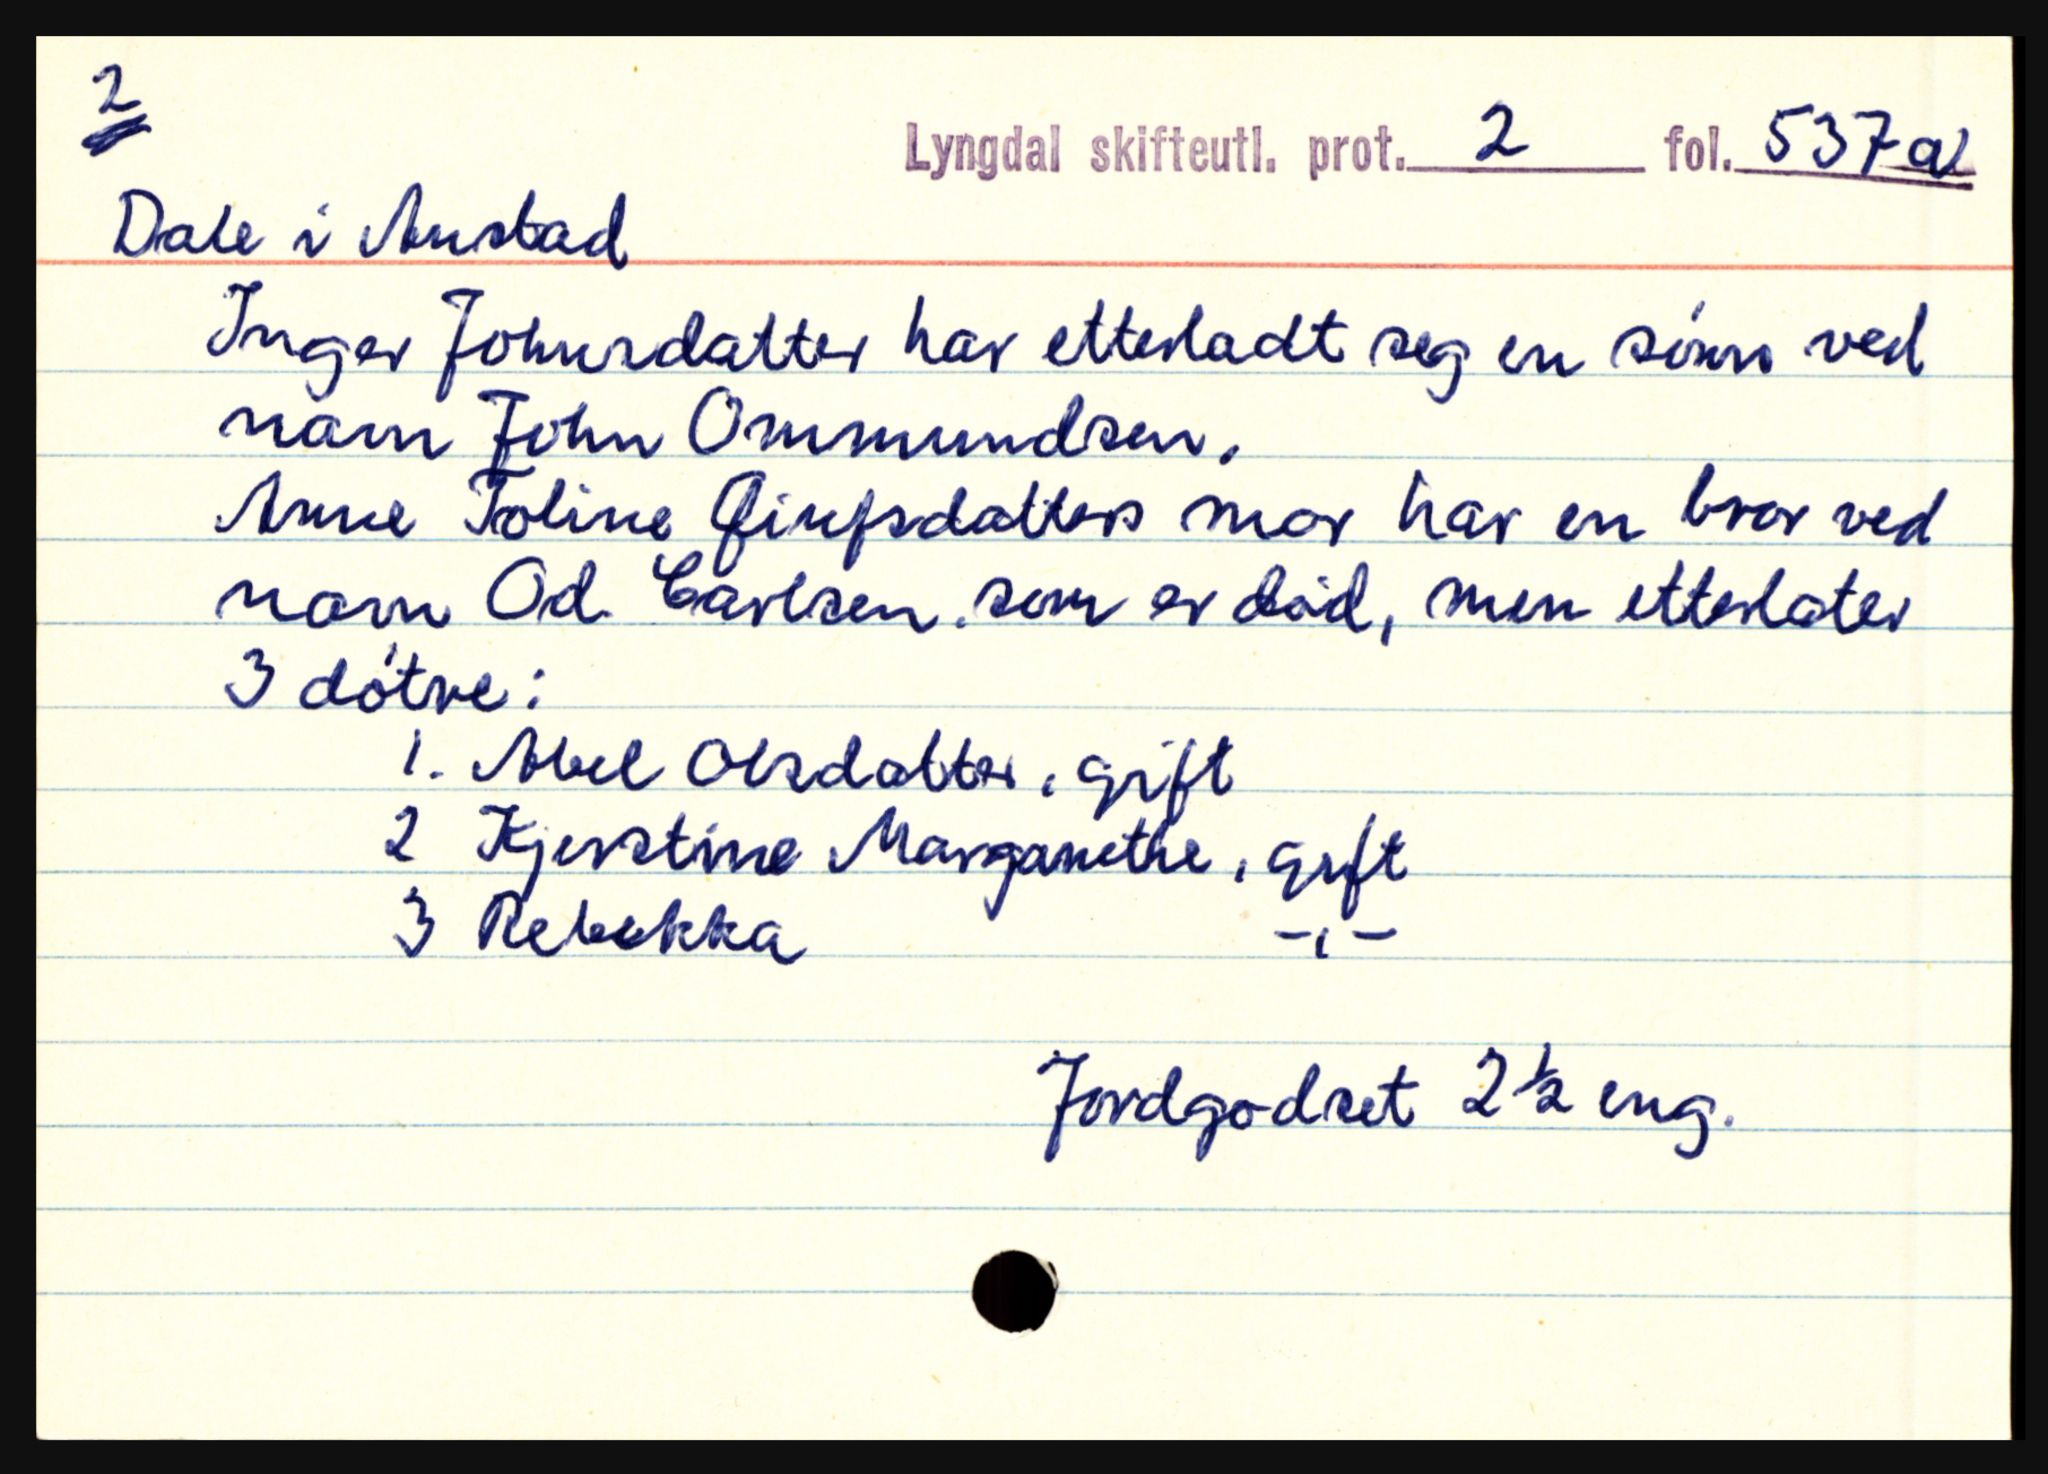 2
Lyngdal skifteutl. prot. 2 fol. 537a
Dale i Austad
Inger Johnsdatter har etterladt seg en sönn ved
navn John Ommundsen.
Anne Toline mor har en bror ved
navn Od. Carlsen. som er död, men etterlater
3 dötre:
1. Abel Olsdatter, gift
2 Kjerstine Margarethe, gift
3 Rebekka -,-
Jordgodset 2½ eng.